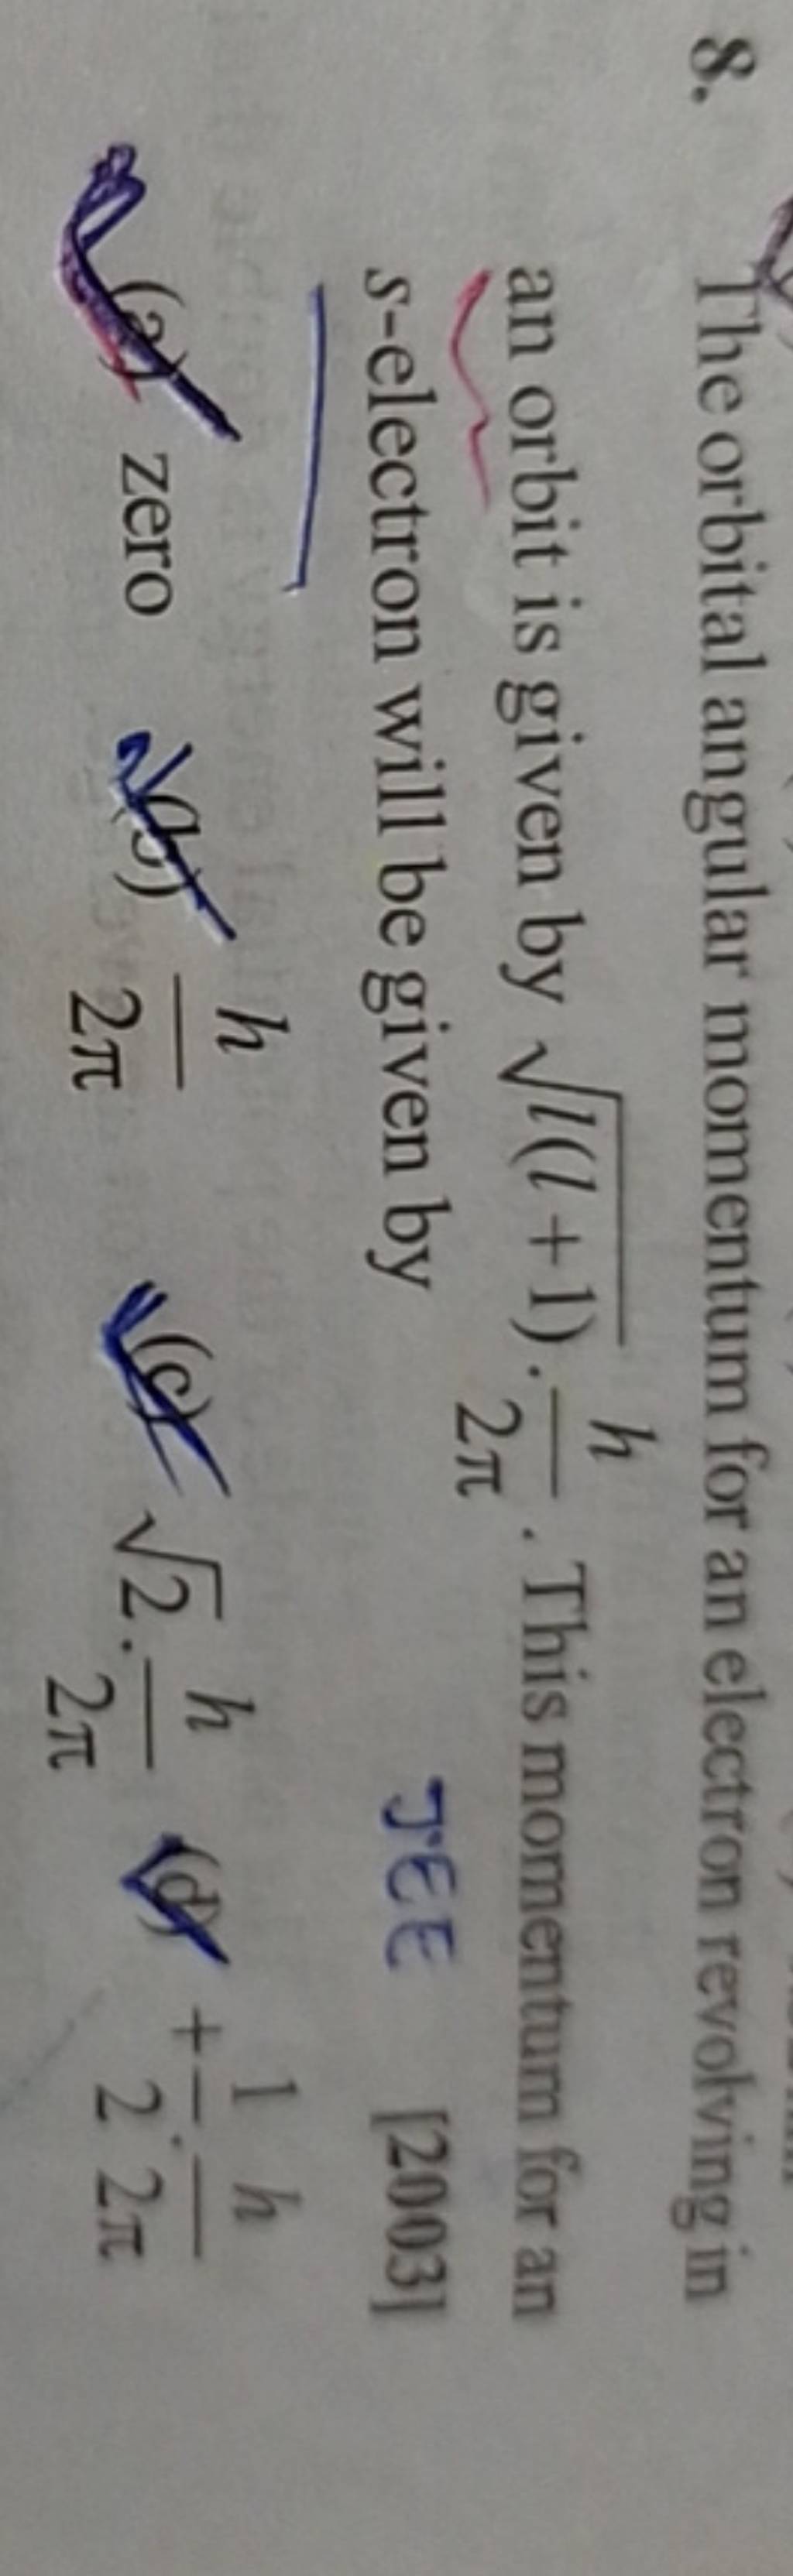 8. The orbital angular momentum for an electron revolving in
an orbit is given by √l(l+1) . h/2π . This momentum for an
s-electron will be given by JEE [2003]
(a) zero (b) h/2π (c) √2 . h/2π (d) + 1/2 . h/2π